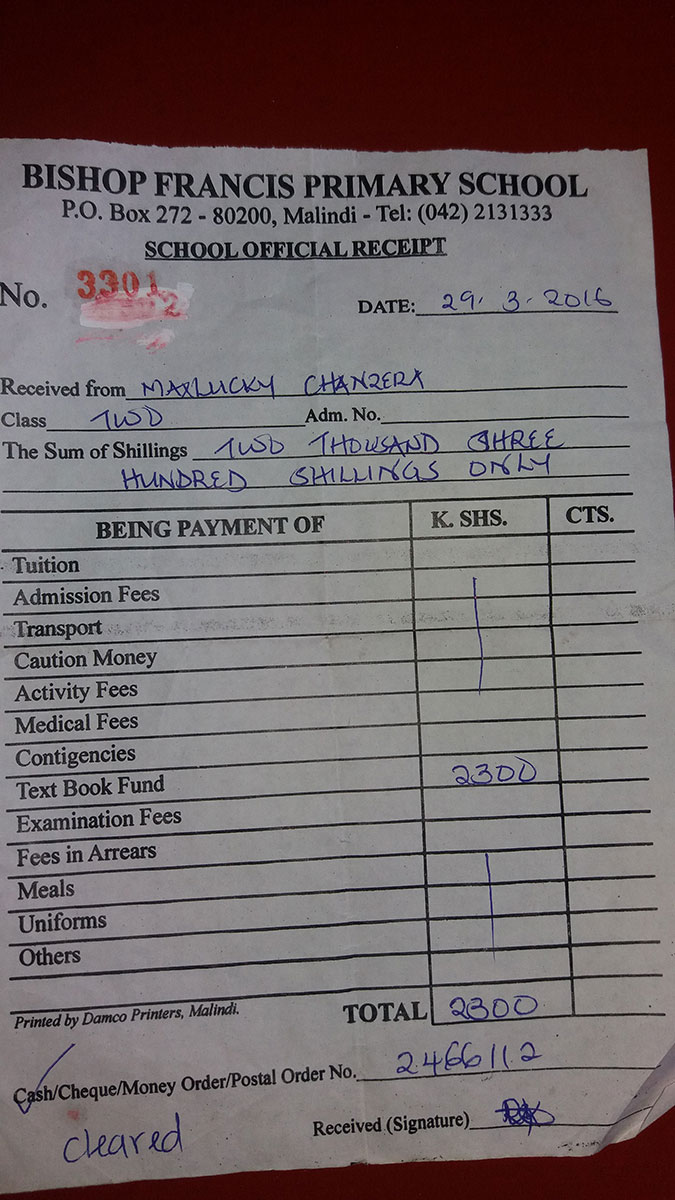 BISHOP FRANCIS PRIMARY SCHOOL
P.O. Box 272 - 80200, Malindi - Tel: (042) 2131333
SCHOOL OFFICIAL RECEIPT
No. 3301
DATE: 29. 3. 2016
Received from MAXLUCKY CHANZERA
Class TWO Adm. No.
The Sum of Shillings TWO THOUSAND THREE
HUNDRED SHILLINGS ONLY
BEING PAYMENT OF K. SHS. CTS.
Tuition
Admission Fees
Transport
Caution Money
Activity Fees
Medical Fees
Contigencies
Text Book Fund 2300
Examination Fees
Fees in Arrears
Meals
Uniforms
Others
Printed by Damco Printers, Malindi. TOTAL 2300
Cash/Cheque/Money Order/Postal Order No. 2466112
cleared Received (Signature)